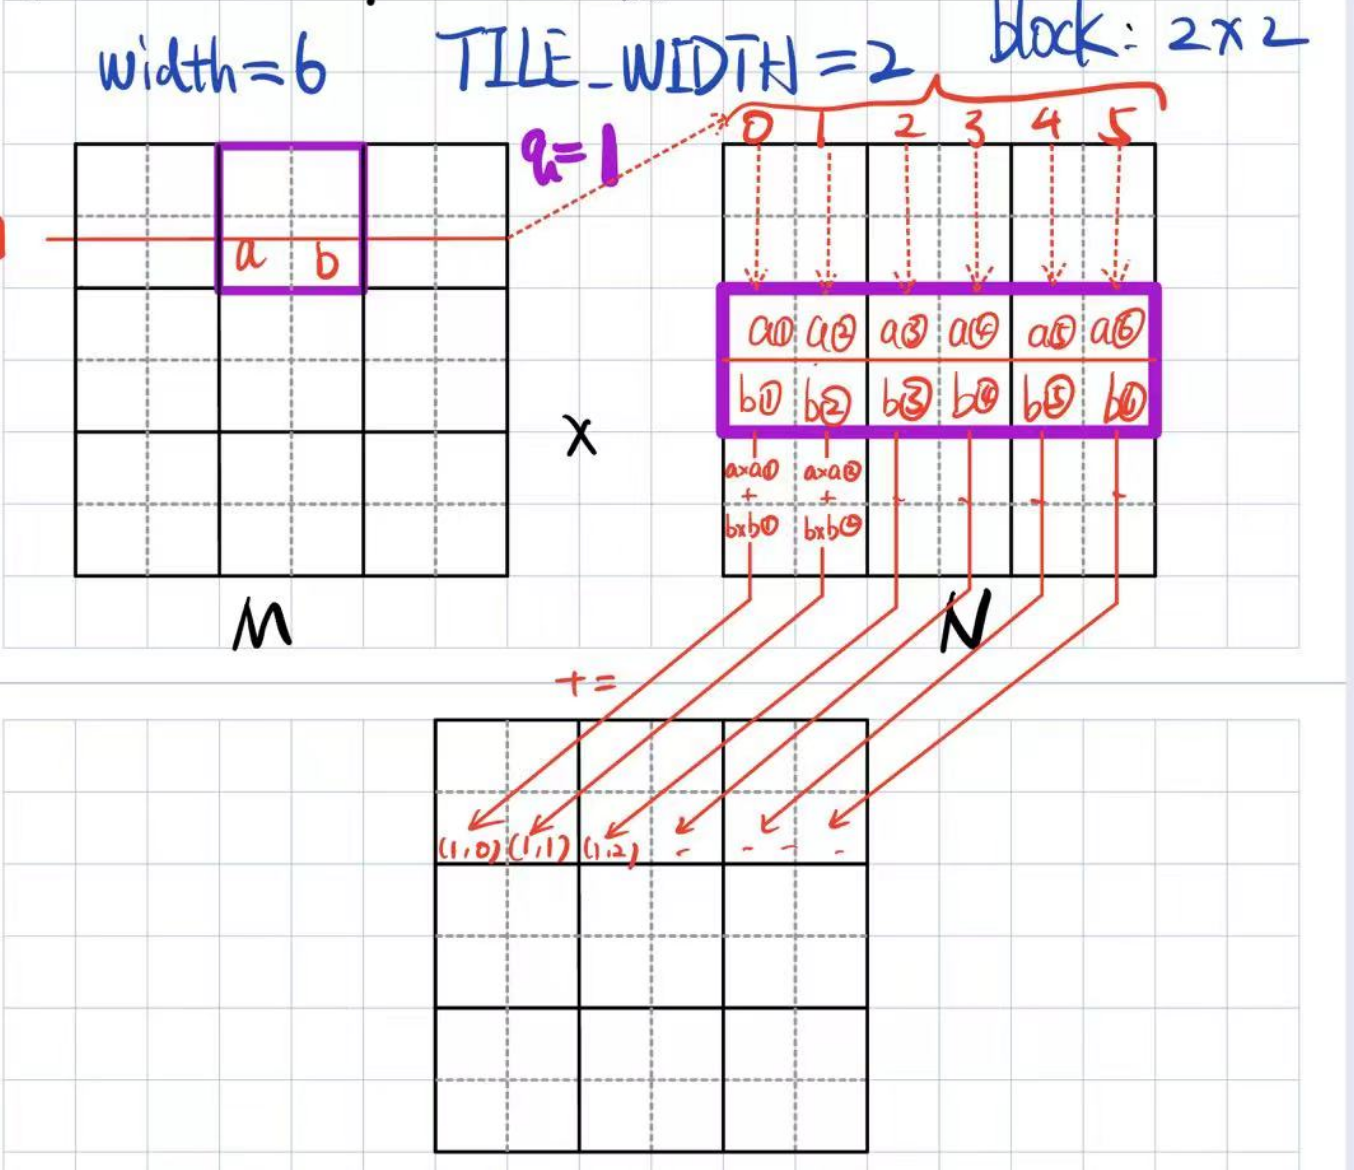 width=6 TILE_WIDTH=2 block: 2×2
q=1
0 1 2 3 4 5
a b
a① a② a③ a④ a⑤ a⑥
b① b② b③ b④ b⑤ b⑥
×
a×a① a×a②
+ +
b×b① b×b②
M N
+=
(1,0) (1,1) (1,2)